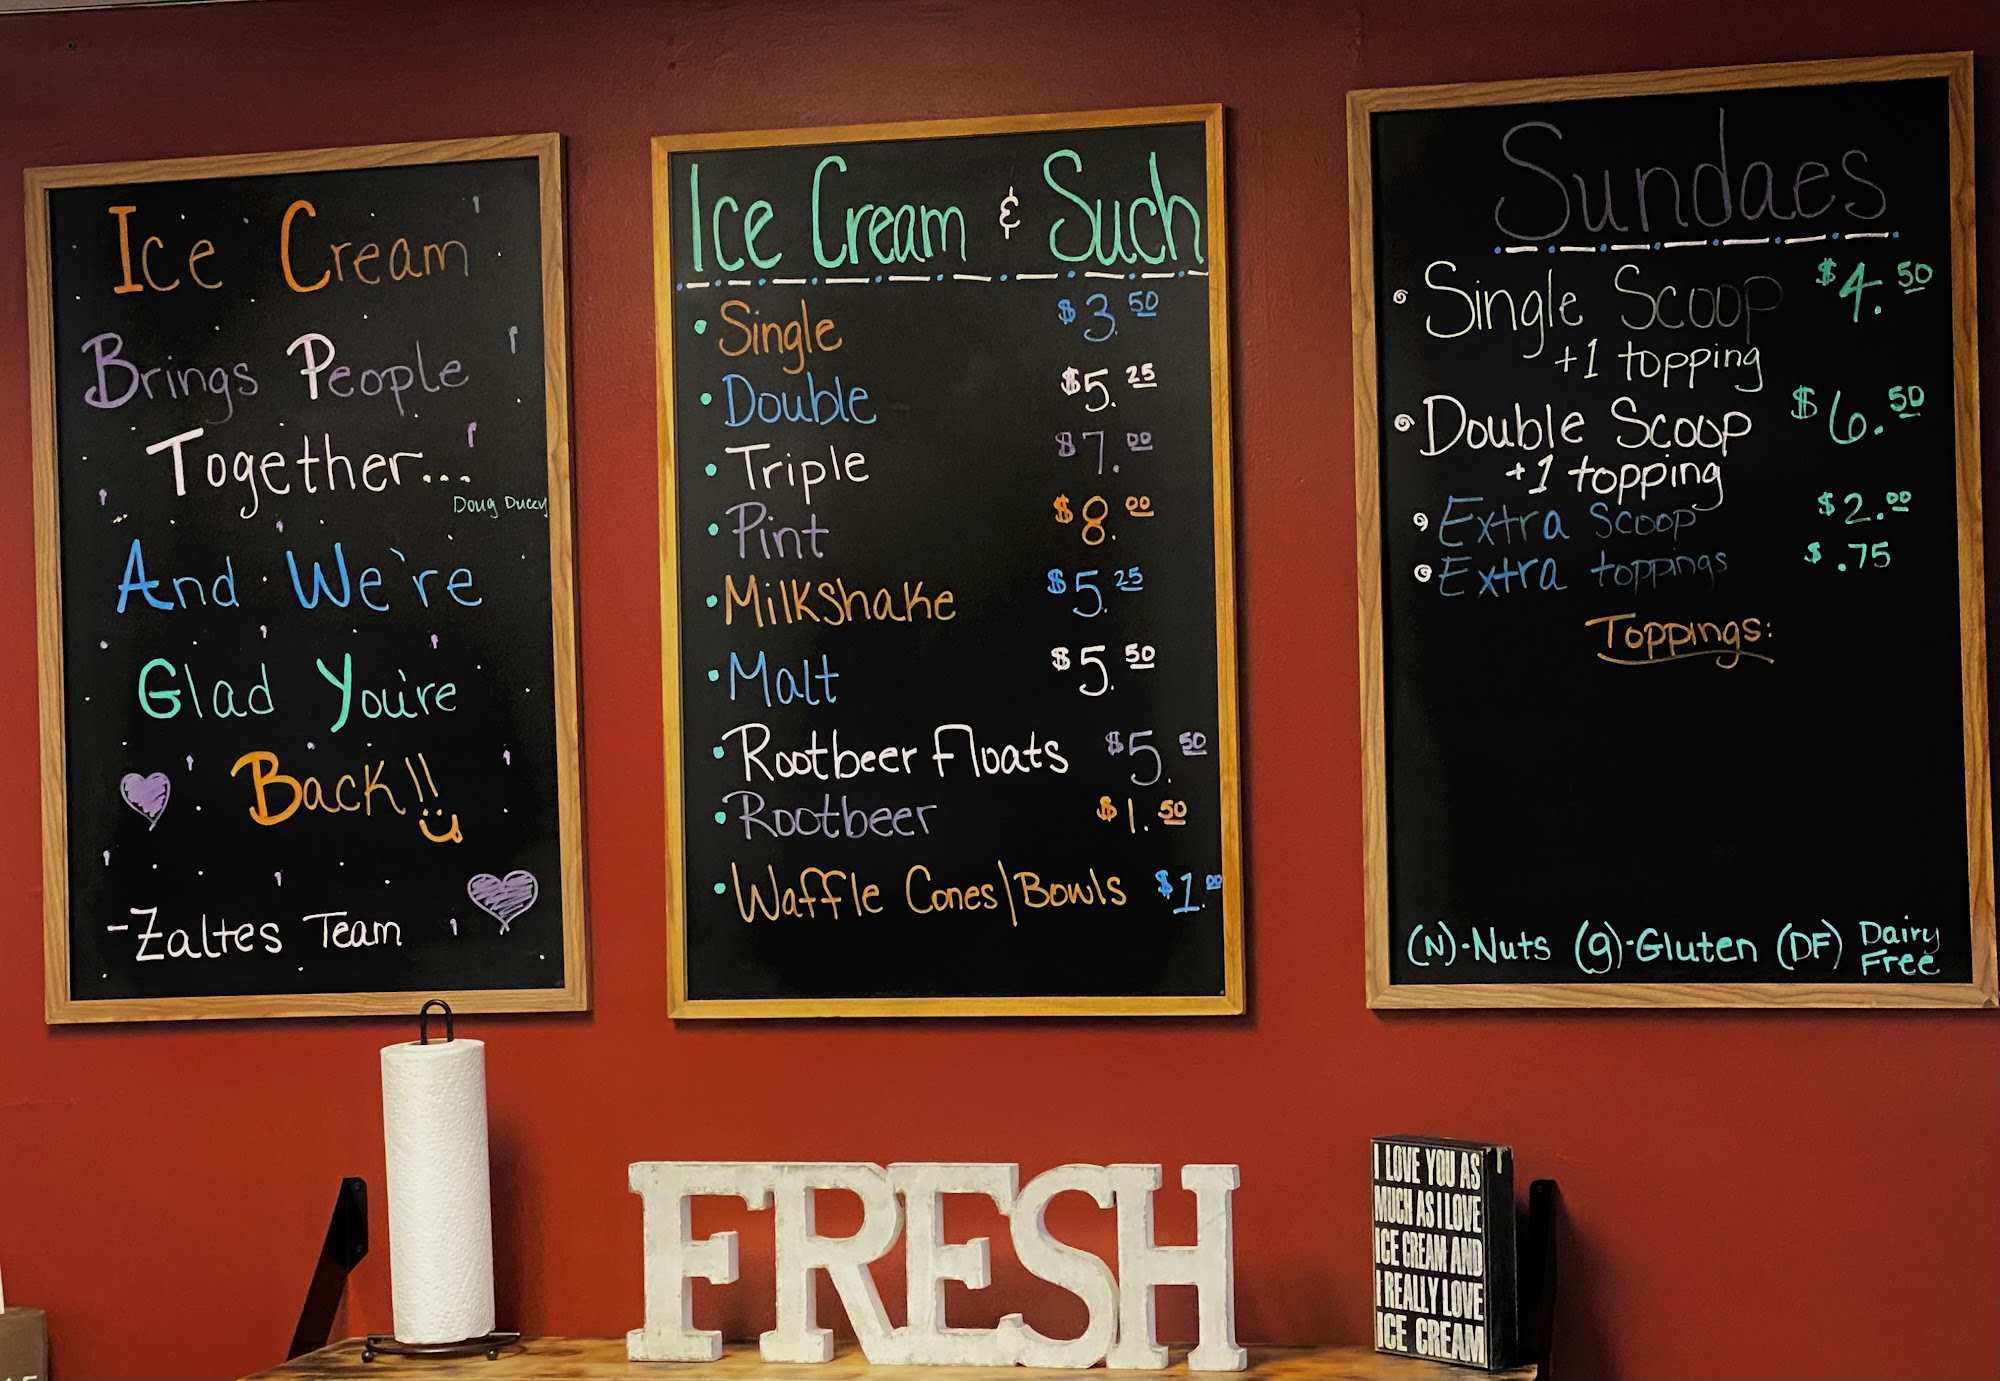 Ice Cream
Brings People
Together...
Doug Ducey
And We're
Glad You're
Back!!
-Zaltes Team
Ice Cream & Such
• Single $3.50
• Double $5.25
• Triple $7.00
• Pint $8.00
• Milkshake $5.25
• Malt $5.50
• Rootbeer Floats $5.50
• Rootbeer $1.50
• Waffle Cones/Bowls $1.00
Sundaes
Single Scoop $4.50
+1 topping
Double Scoop $6.50
+1 topping
Extra Scoop $2.00
Extra toppings $.75
Toppings:
(N)-Nuts (g)-Gluten (DF) Dairy
Free
FRESH
I LOVE YOU AS
MUCH AS I LOVE
ICE CREAM AND
I REALLY LOVE
ICE CREAM